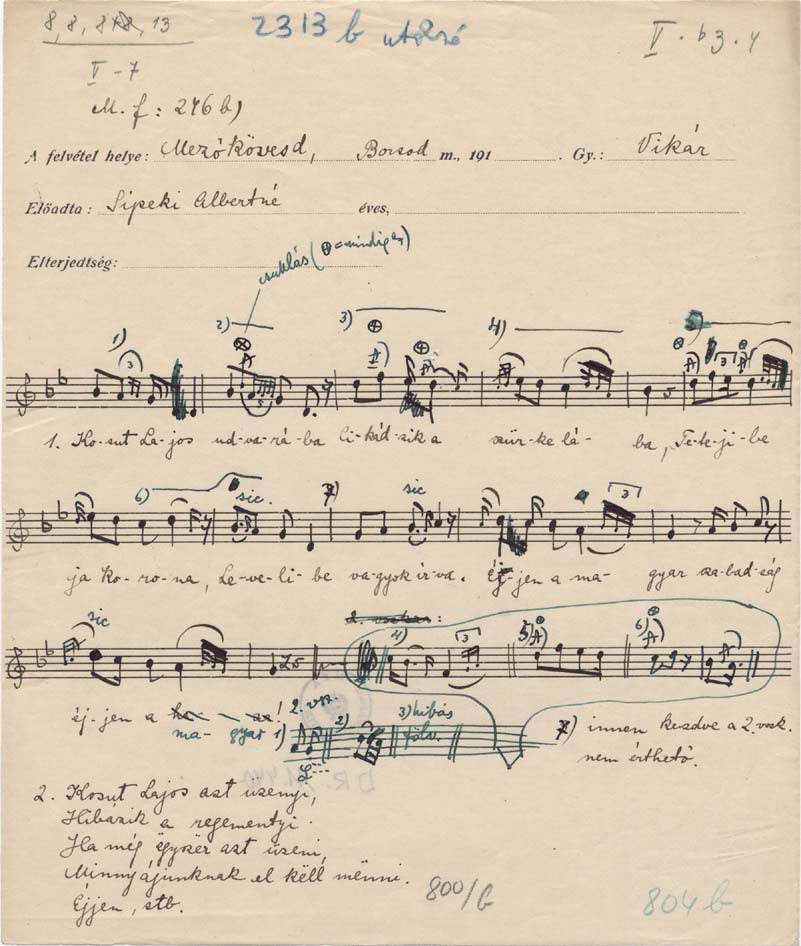 8, 8, 8+8, 13
2313 b utolsó
V. b3. 4
V-7
M. f: 246 b)
A felvétel helye: Mezőkövesd, Borsod m., 191 . Gy.: Vikár
Előadta: Sipeki Albertné éves,
Elterjedtség:
csuklás (⊕=mindig ez)
1) 2) 3) 4) 5)
3 5 3
1. Ko-sut La-jos ud-va-rá-ba li-kád-zik a szür-ke lá- ba, Te-te-ji-be
6) sic. 7) sic 3
ja ko-ro-na, Le-ve-li-be va-gyok ir-va. Éj-jen a ma- gyar sza-bad-ság
sic
4) 3 5) 6)
éj-jen a
ma- gyar
2. vsz.
1) 2) 3) hibás
fölv.
7) innen kezdve a 2. vszk.
nem érthető.
2. Kosut Lajos azt üzenyi,
Hibázik a regementyi.
Ha még ëgyszër azt üzeni,
Minnyájunknak el këll mënni.
Éjjen, stb.
800/b
804 b